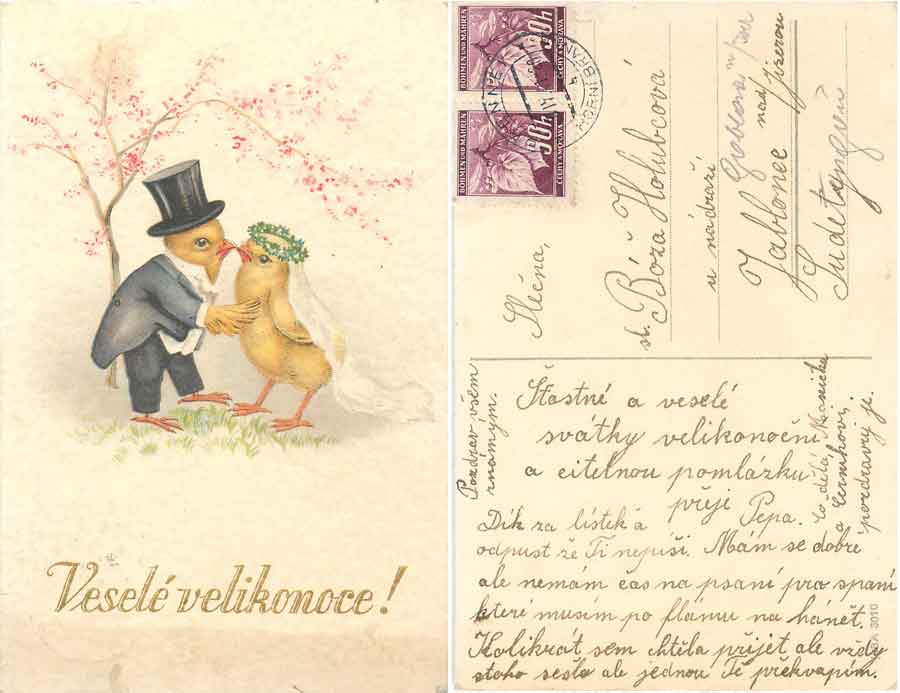 Veselé velikonoce!
BÖHMEN UND MÄHREN
30h
ČECHY A MORAVA
BÖHMEN UND MÄHREN
30h
ČECHY A MORAVA
Slečna,
sl. Bóža Holubcová
u nádraží
Jablonec nad Jizerou
Sudetengau
Šťastné a veselé
svátky velikonoční
a citelnou pomlázku
přeje Pepa.
Dík za lístek a
odpusť že Ti nepíši. Mám se dobře
ale nemám čas na psaní pro spaní
které musím po flámu na hánět.
Kolikrát sem chtěla přijet ale vždy
stoho sešlo ale jednou Tě překvapím.
Pozdrav všem
známým.
Co dělá
a
pozdravuj je.
3010